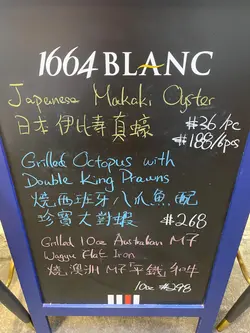 1664 BLANC
Japanese Makaki Oyster
日本伊比壽真蠔 #36/pc
#188/6pcs
Grilled Octopus with
Double King Prawns
燒西班牙八爪魚配
珍寶大對蝦 #268
Grilled 10oz Australian M7
Wagyu Flat Iron
燒澳洲M7平鐵和牛
10oz #298